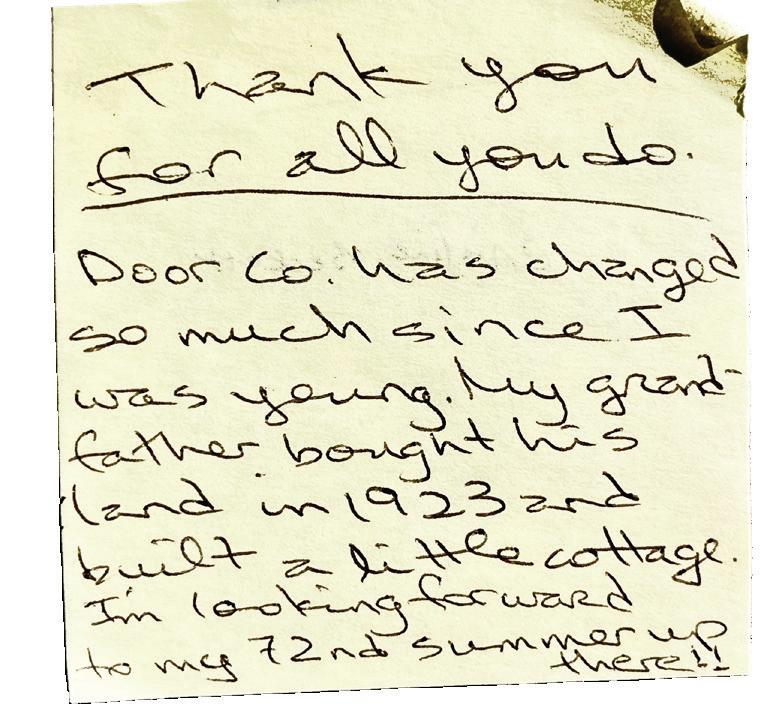 Thank you
for all you do.
Door Co. has changed
so much since I
was young. My grand-
father bought his
land in 1923 and
built a little cottage.
I'm looking forward
to my 72nd summer up
there!!